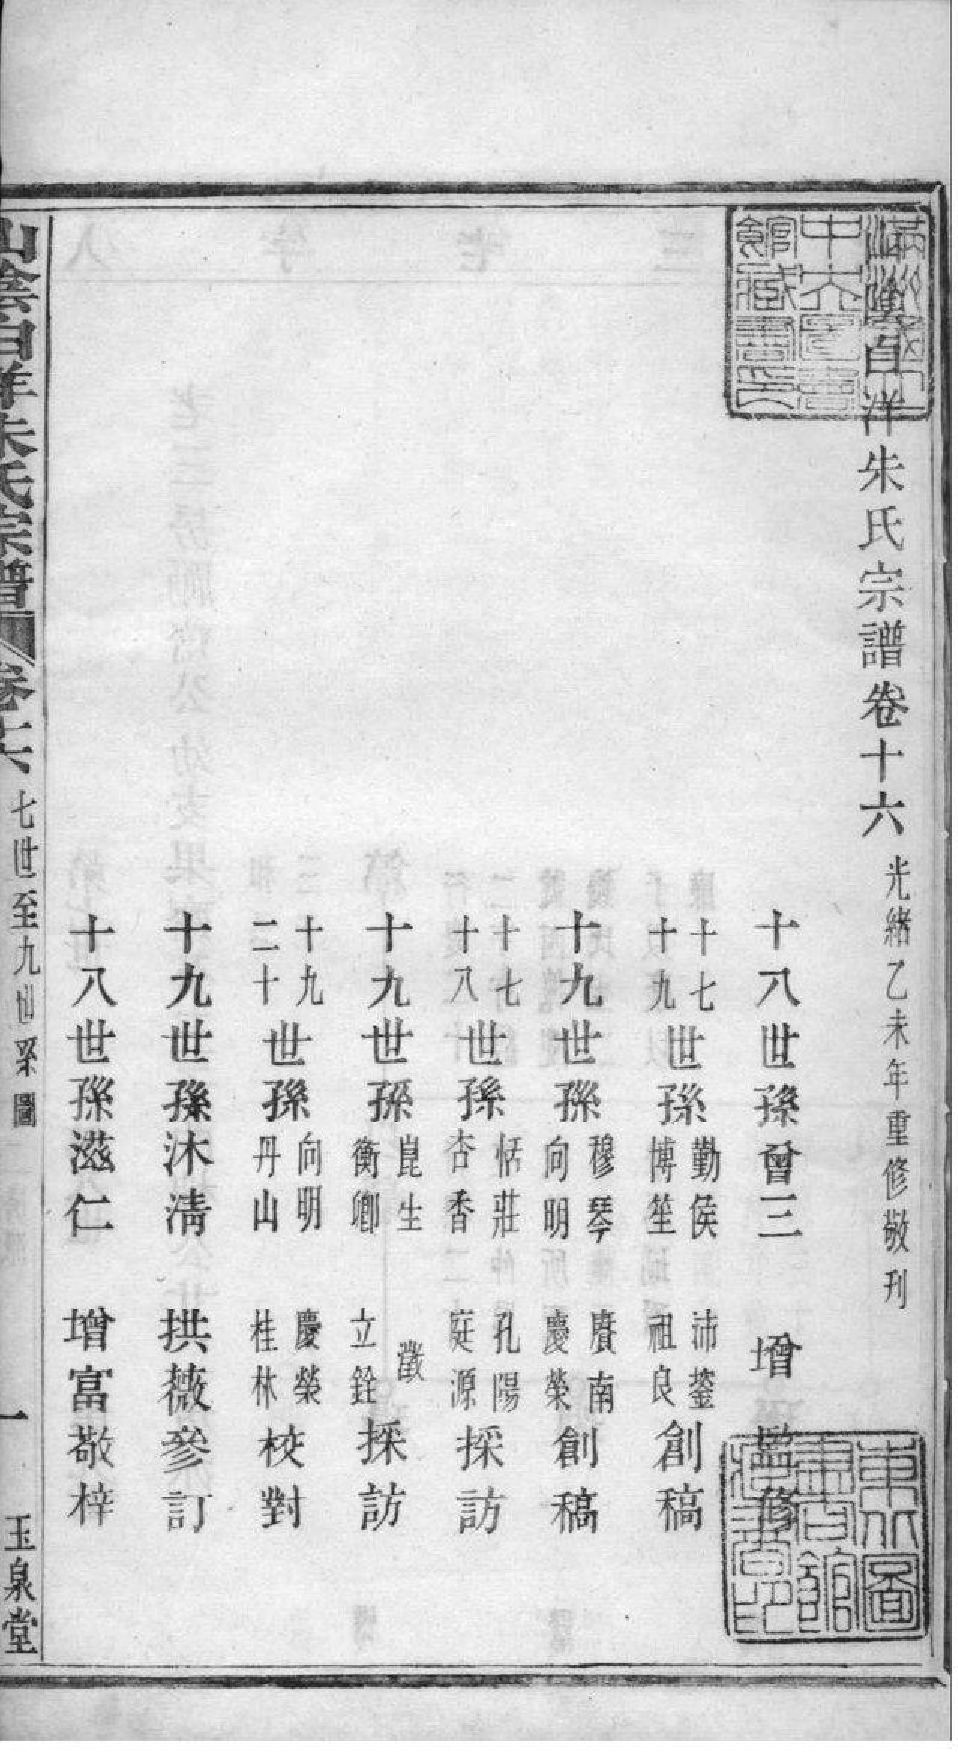 山陰白洋朱氏宗譜卷十六 光緒乙未年重修敬刊
十八世孫曾三 增 監修
十七十九世孫勤侯博笙 沛鋆祖良創稿
十九世孫穆琴向明 賡南慶榮創稿
十七十八世孫恬莊杏香 孔陽庭源採訪
十九世孫崑生衡卿 澂立銓採訪
十九二十世孫向明丹山 慶榮桂林校對
十九世孫沐清 拱薇參訂
十八世孫滋仁 增富敬梓
山陰白洋朱氏宗譜 卷十六 七世至九世系圖 一 玉泉堂
滿洲國立中央圖書館藏書印
東北圖書館所藏善本